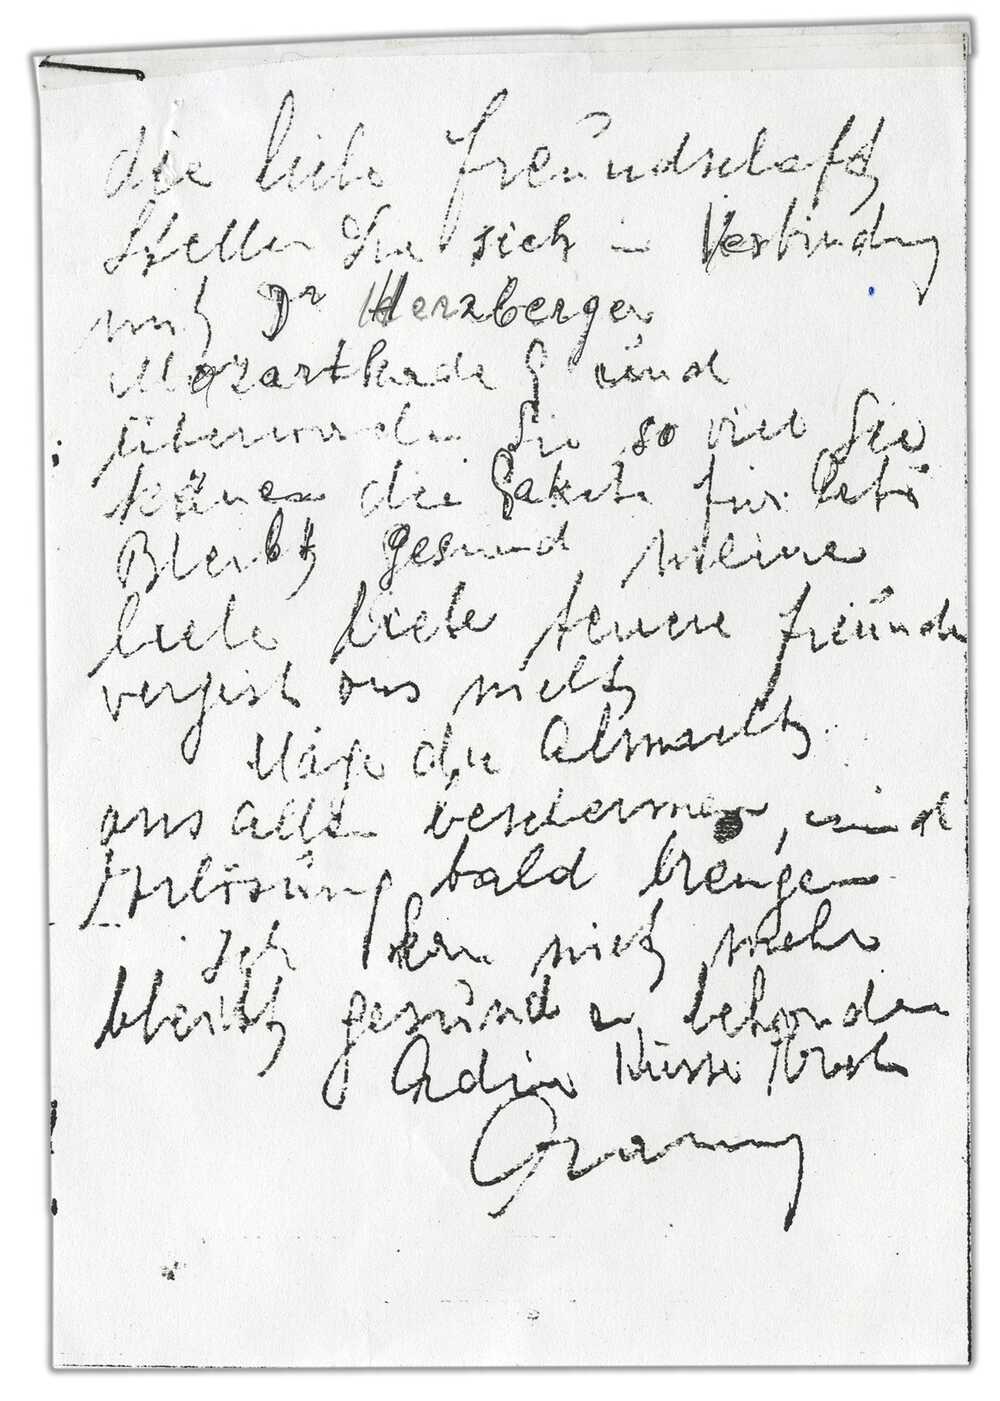 die liebe Freundschaft
Stellen Sie sich in Verbindung
mit Dr Herzberger
Mozartkade 9 und
überwenden Sie so viel Sie
känen die Pakete für
Bleibt gesund meine
liebe liebe teuere freunde
vergist uns nicht
Möge der Almacht
uns allen beschermen, und
Erlösung bald brengen
Ich kan nicht mehr
bleibt gesund en behouden
Adieu Küsse
Granny